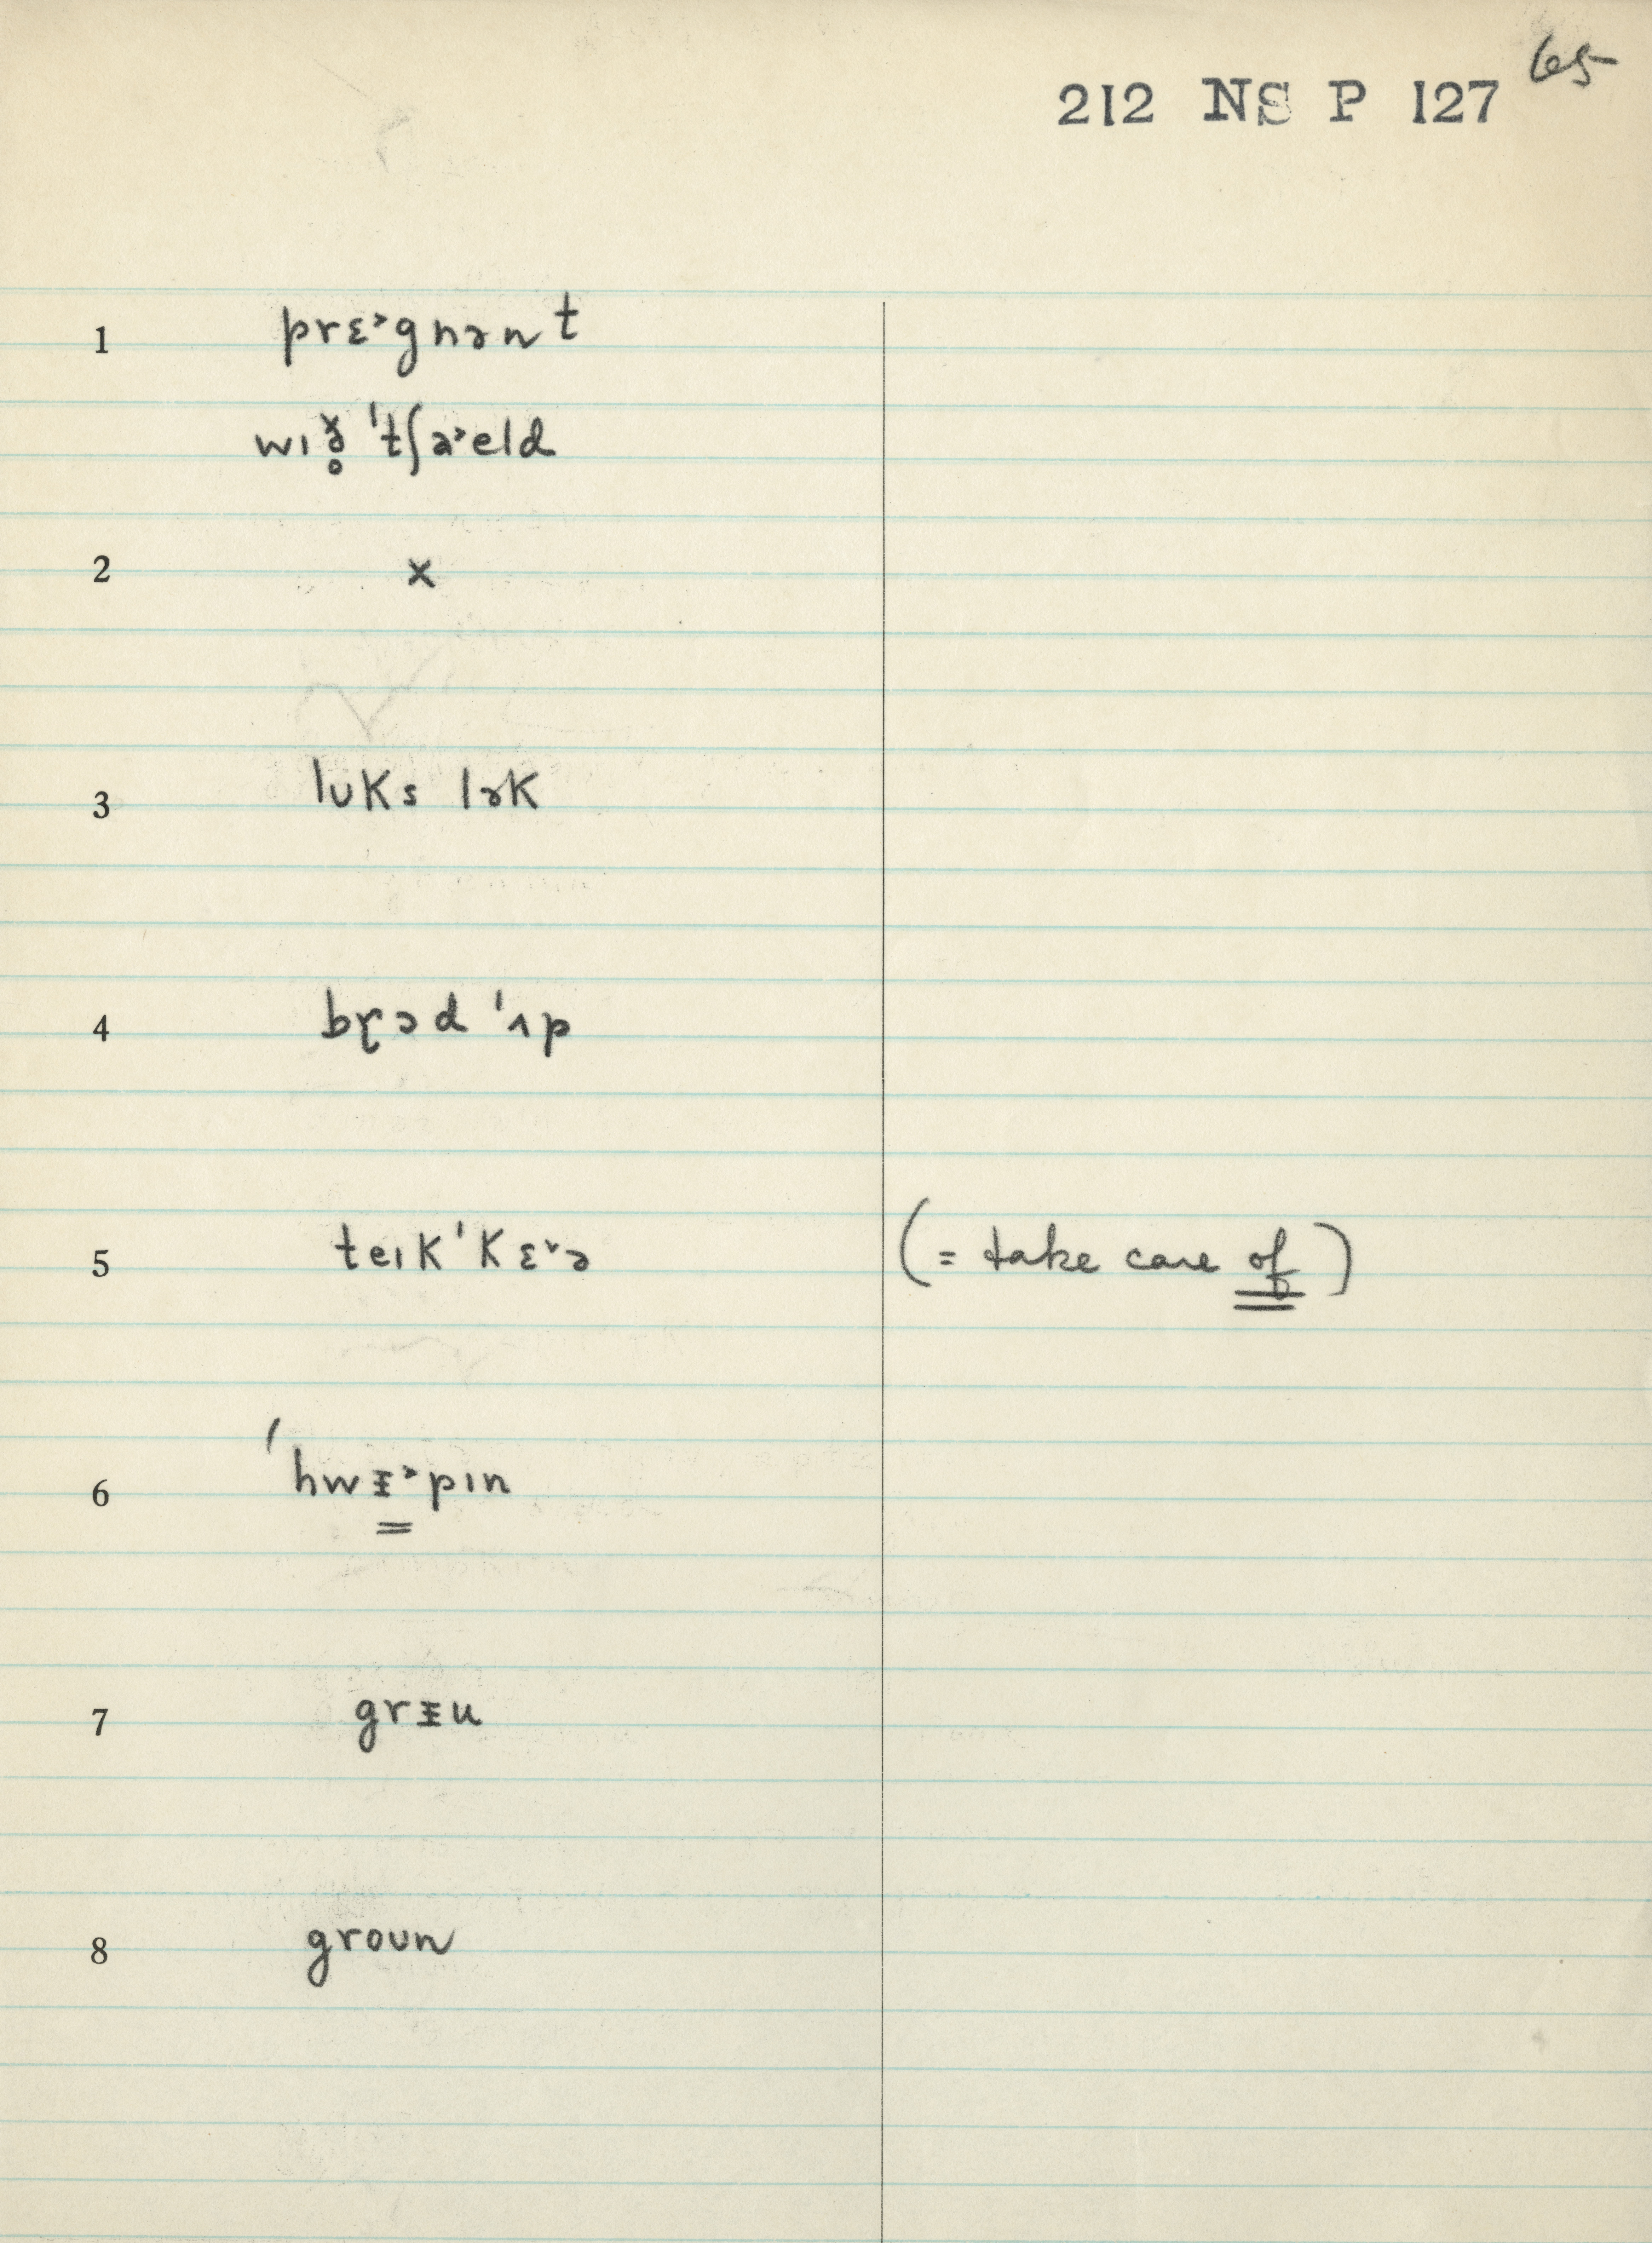 65
212 NS P 127
1 prɛ˃gnənt
wɪð̥̆ ˈtʃa˃eld
2 x
3 lʊks lək
4 bɽɔd ˈʌp
5 teɪk ˈkɛ˅ə (= take care of)
6 ˈhwᵻ˃pɪn
7 grᵻu
8 groʊn